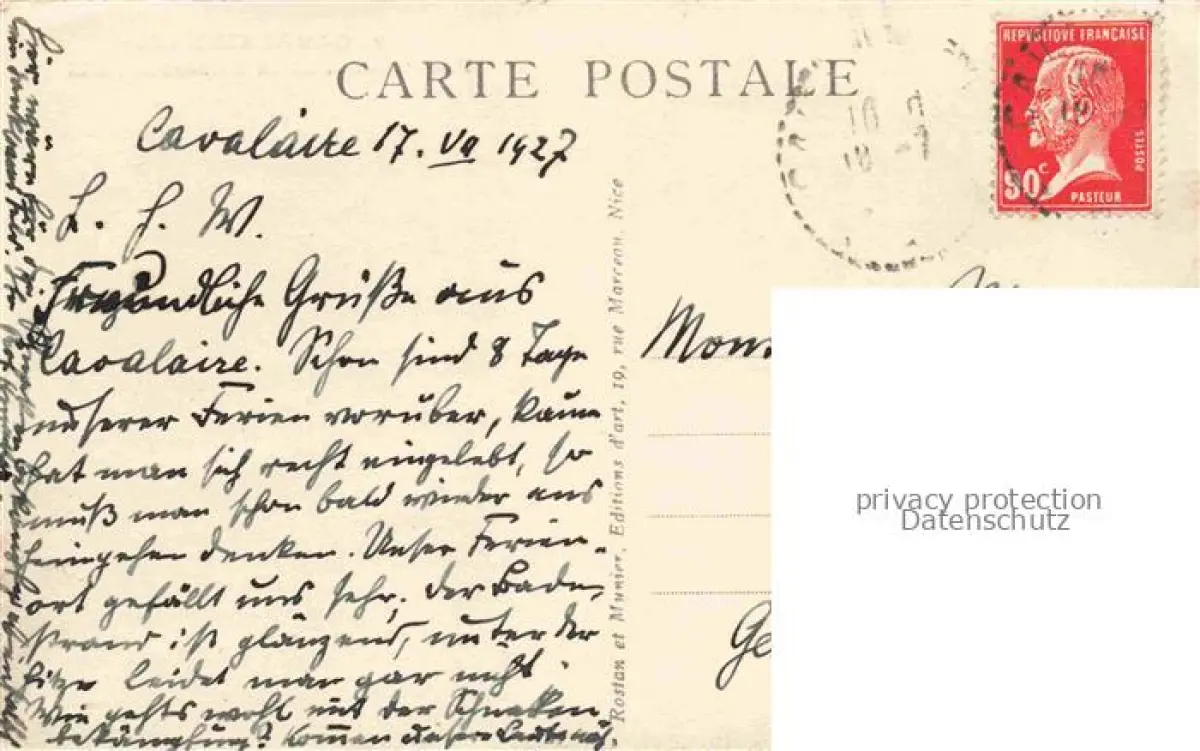 CARTE POSTALE
Cavalaire 17. VII 1927
L. H. W.
Freundliche Grüße aus
Cavalaire. Schon sind 8 Tage
unserer Ferien vorüber, kaum
hat man sich recht eingelebt, so
muß man schon bald wieder ans
heimgehen denken. Unser Ferien-
ort gefällt uns sehr, der Bade-
strand ist glänzend, unter der
Hitze leidet man gar nicht.
Wie gehts wohl mit der Schnecken
bekämpfung? Kommen unsere Leute
Rostan et Munier, Editions d'art, 19, rue Marceau, Nice
REPUBLIQUE FRANÇAISE
POSTES
90 c
PASTEUR
Mons
Ge
privacy protection
Datenschutz